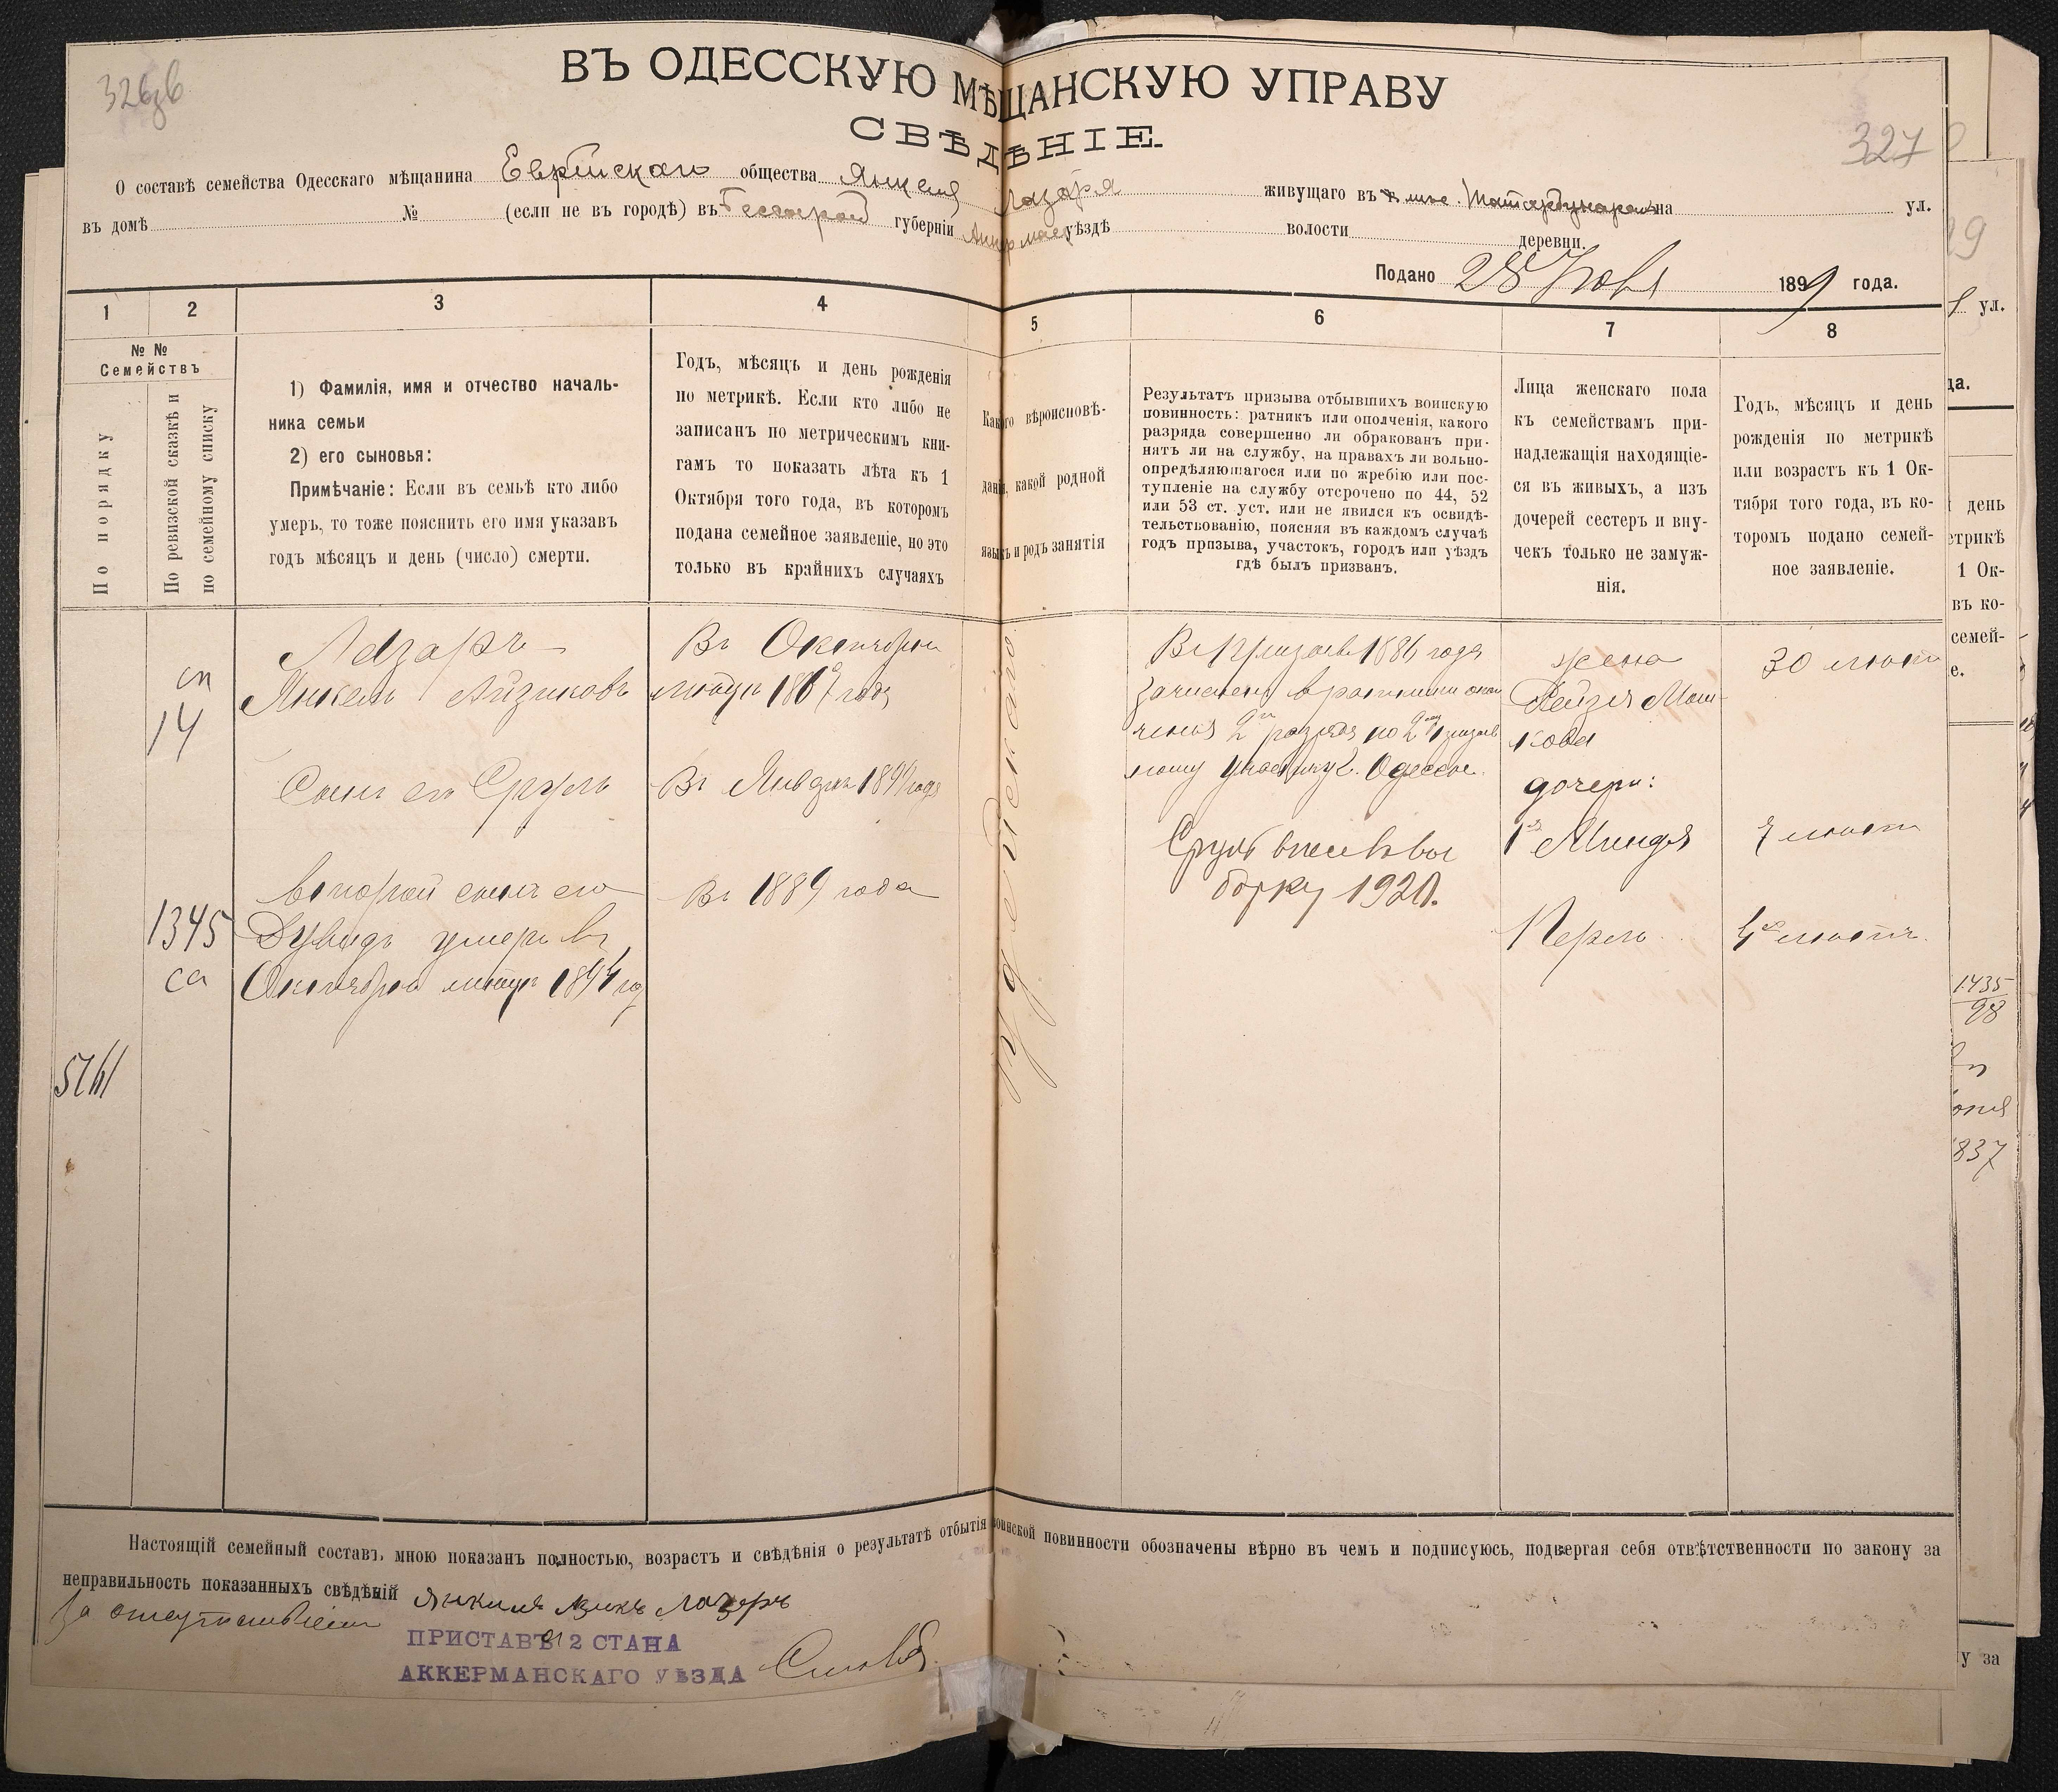 326зв
327
ВЪ ОДЕССКУЮ МѢЩАНСКУЮ УПРАВУ
СВѢДѢНІЕ.
О составѣ семейства Одесскаго мѣщанина Еврейскаго общества Янкеля Лазаря живущаго въ Татарбунарахъ на ул.
въ домѣ № (если не въ городѣ) въ Бессараб губерніи Аккерманс уѣздѣ волости деревни.
Подано 28 1899 года.
1 2 3 4 5 6 7 8
№ №
Семействъ
По порядку
По ревизской сказкѣ и
по семейному списку
1) Фамилія, имя и отчество началь-
ника семьи
2) его сыновья:
Примѣчаніе: Если въ семьѣ кто либо
умеръ, то тоже пояснить его имя указавъ
годъ мѣсяцъ и день (число) смерти.
Годъ, мѣсяцъ и день рожденія
по метрикѣ. Если кто либо не
записанъ по метрическимъ кни-
гамъ то показать лѣта къ 1
Октября того года, въ которомъ
подана семейное заявленіе, но это
только въ крайнихъ случаяхъ
Какого вѣроисповѣ-
данія, какой родной
языкъ и родъ занятія
Результатъ призыва отбывшихъ воинскую
повинность: ратникъ или ополченія, какого
разряда совершенно ли обракованъ при-
нятъ ли на службу, на правахъ ли вольно-
опредѣляющагося или по жребію или пос-
тупленіе на службу отсрочено по 44, 52
или 53 ст. уст. или не явился къ освидѣ-
тельствованію, поясняя въ каждомъ случаѣ
годъ призыва, участокъ, городъ или уѣздъ
гдѣ былъ призванъ.
Лица женскаго пола
къ семействамъ при-
надлежащія находящіе-
ся въ живыхъ, а изъ
дочерей сестеръ и вну-
чекъ только не замуж-
нія.
Годъ, мѣсяцъ и день
рожденія по метрикѣ
или возрастъ къ 1 Ок-
тября того года, въ ко-
торомъ подано семей-
ное заявленіе.
сп
14
1345
са
Лазаръ
Янкель Айзиковъ
Сынъ его Сруль
второй сынъ его
Дувидъ умеръ въ
Октябрѣ мѣсяцѣ
Въ Октябрѣ
мѣсяцѣ
Въ Январѣ
Въ 1889 года
Іудейскаго
Въ призывѣ года
зачисленъ въ ратники опол
ченія 2го разряда по 2му призыв
ному участку г. Одессы.
Сруль внесенъ въ вы
борку 1920.
жена
Рейзя Мош-
кова
дочери:
1я Миндля
Перль
30 лѣтъ
7 лѣтъ
4 лѣтъ
ул.
1435
98
837
Настоящій семейный составъ, мною показанъ полностью, возрастъ и свѣдѣнія о результатѣ отбытія воинской повинности обозначены вѣрно въ чемъ и подписуюсь, подвергая себя отвѣтственности по закону за
неправильность показанныхъ свѣдѣній Янкиль Лазеръ
За отсутствіемъ
ПРИСТАВЪ 2 СТАНА
АККЕРМАНСКАГО УѢЗДА